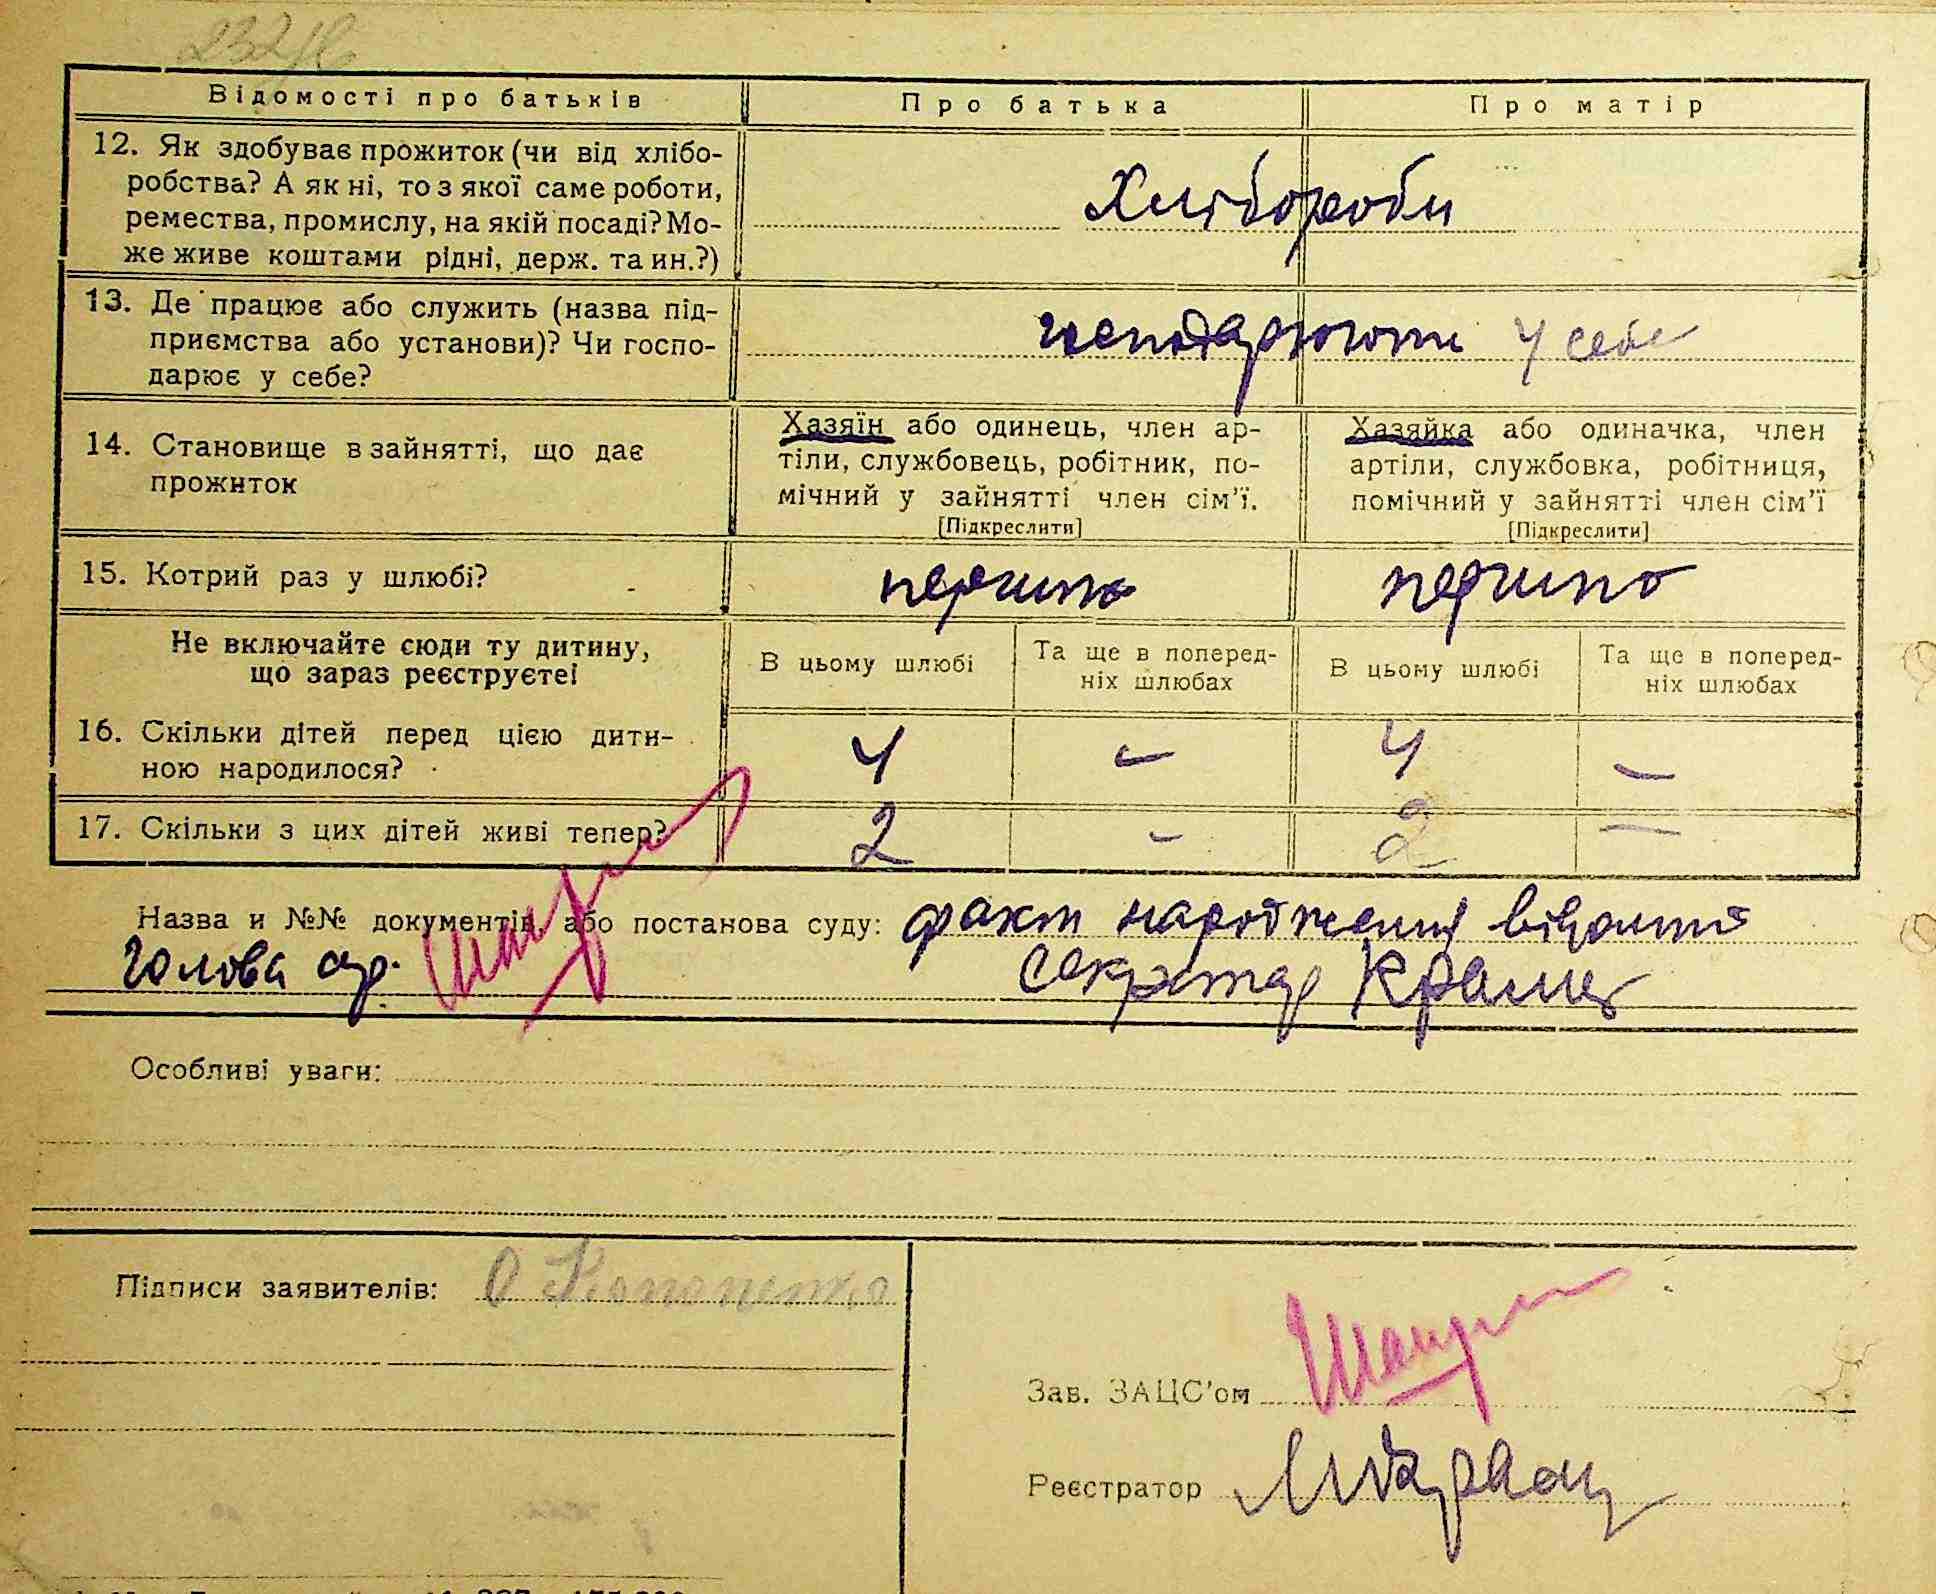 Відомості про батьків
Про батька
Про матір
12. Як здобуває прожиток (чи від хлібо-
робства? А як ні, то з якої саме роботи,
ремества, промислу, на якій посаді? Мо-
же живе коштами рідні, держ. та ин.?)
Хлібороби
13. Де працює або служить (назва під-
приємства або установи)? Чи госпо-
дарює у себе?
господарюють у себе
14. Становище в зайнятті, що дає
прожиток
Хазяїн або одинець, член ар-
тіли, службовець, робітник, по-
мічний у зайнятті член сім'ї.
[Підкреслити]
Хазяйка або одиначка, член
артіли, службовка, робітниця,
помічний у зайнятті член сім'ї
[Підкреслити]
15. Котрий раз у шлюбі?
першим
першим
Не включайте сюди ту дитину,
що зараз реєструєте!
В цьому шлюбі
Та ще в поперед-
ніх шлюбах
В цьому шлюбі
Та ще в поперед-
ніх шлюбах
16. Скільки дітей перед цією дити-
ною народилося?
4 – 4 –
17. Скільки з цих дітей живі тепер?
2 - 2 –
Назва и №№ документів або постанова суду: факт народження відомий
Голова с/р. секретар
Особливі уваги:
Підписи заявителів: О Кононенко
Зав. ЗАЦС'ом
Реєстратор